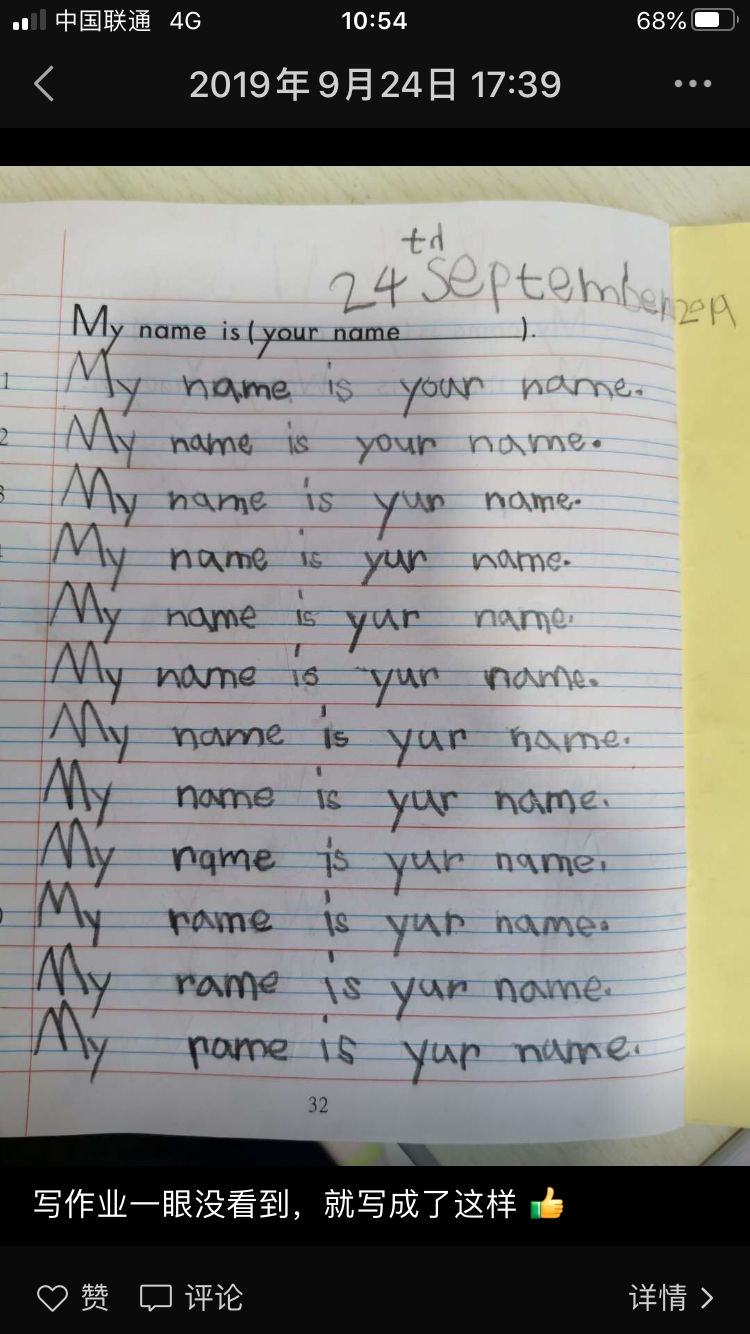 中国联通 4G 10:54 68%
2019年9月24日 17:39
td
24 September 2019
My name is (your name ).
1 My name is your name.
2 My name is your name.
3 My name is yur name.
My name is yur name.
My name is yur name.
My name is yur name.
My name is yur name.
My name is yur name.
My name is yur name.
My rame is yur name.
My rame is yur name.
My name is yur name.
32
写作业一眼没看到，就写成了这样 👍
赞 评论 详情